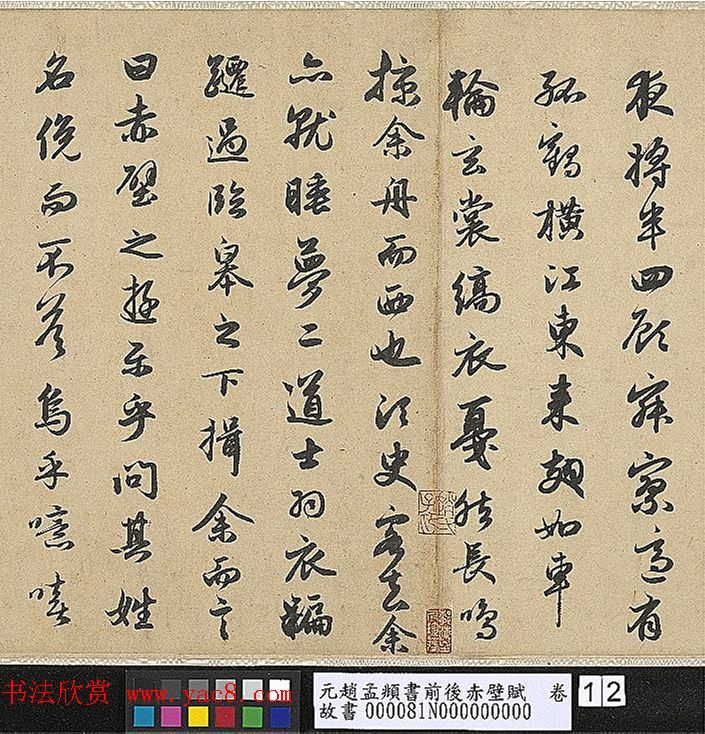 夜將半四顧寂寥適有
孤鶴橫江東來翅如車
輪玄裳縞衣戛然長鳴
掠余舟而西也須臾客去余
亦就睡夢二道士羽衣蹁
躚過臨皋之下揖余而言
曰赤壁之遊樂乎問其姓
名俛而不答烏乎噫嘻
趙氏子昂
书法欣赏 www.yac8.com
元趙孟頫書前後赤壁賦 卷
故書 000081N000000000
12